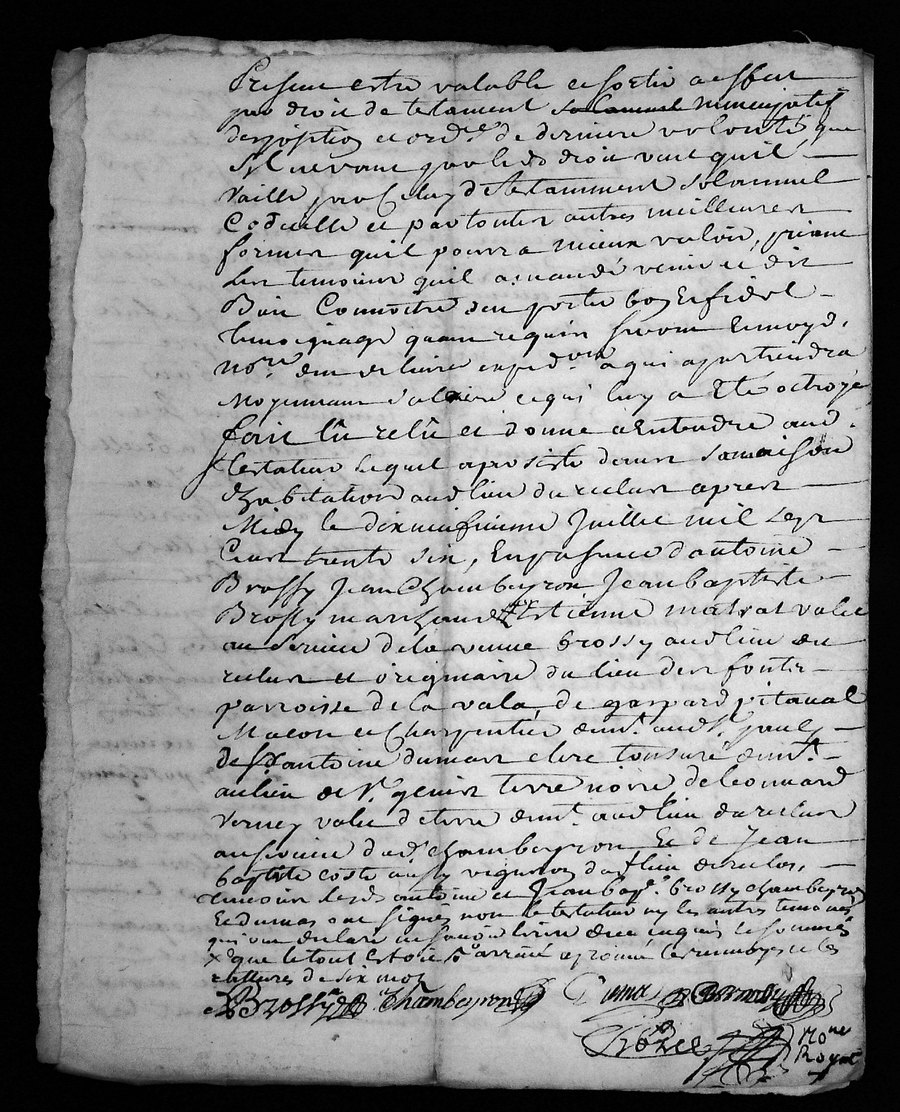 Presente estre valable et sortir à effect
par droit de testament solannuel nuncupatif
disposition et ordce de derniere volonté, que
Syl ne vaut par lesd droit veut quil
Vaille par Celuy de testamment solannuel
Codicille et par toutes autres meilleures
formes quil pourra mieux valoir, priant
Les temoins quil a mandé venir et dit
Bien Connoitre den porter bon et fidel
temoignage quand requis seront Et moyd.
nore den delivrer expedon a qui apartiendra
Moyennant salaire ce qui luy a Eté octroyé
fait lû relû et donné a Entendre aud.
testateur lequel a persisté dans sa maison
d'habitation aud lieu du reclus apres
Midy le dix neufvieme Juillet mil sept
Cent trente six, En presence d'antoine
Brossy Jean Chambeyron, Jean baptiste
Brossy marchands Estienne matrat valet
au service de la veuve brossy aud lieu du
reclus et originaire du lieu des fonts
parroisse de la vala, de gaspard pitaval
Macon et Charpentier demt. aud St. paul
de Sr antoine dumas clerc tonsuré demt.
au lieu de St. genis terre noire de leonnard
Verney valet de terre demt. aud lieu du reclus
au service dud. chambeyron, Et de Jean
baptiste coste aussy vigneron dud lieu du reclus,
temoins lesds antoine et Jean bapt. brossy chambeyron
Et dumas ont signés non le testateur ny les autres temoins
qui ont declaré ne savoir ecrire de ce enquis et sommés
que le tout
ratures de six mots
Brossy Chambeyron Dumas Brossy
None
Royal